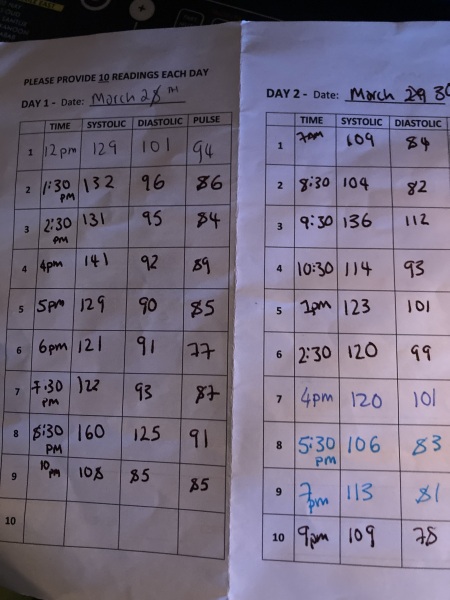 PLEASE PROVIDE 10 READINGS EACH DAY
DAY 1 - Date: March 28 TH
TIME SYSTOLIC DIASTOLIC PULSE
1 12pm 129 101 94
2 1:30 PM 132 96 86
3 2:30 PM 131 95 84
4 4pm 141 92 89
5 5pm 129 90 85
6 6pm 121 91 77
7 7.30 PM 122 93 87
8 8:30 PM 160 125 91
9 10 PM 108 85 85
10
DAY 2 - Date: March 30
TIME SYSTOLIC DIASTOLIC
1 7am 109 84
2 8:30 104 82
3 9:30 136 112
4 10:30 114 93
5 1pm 123 101
6 2:30 120 99
7 4pm 120 101
8 5:30 pm 106 83
9 7pm 113 81
10 9pm 109 78